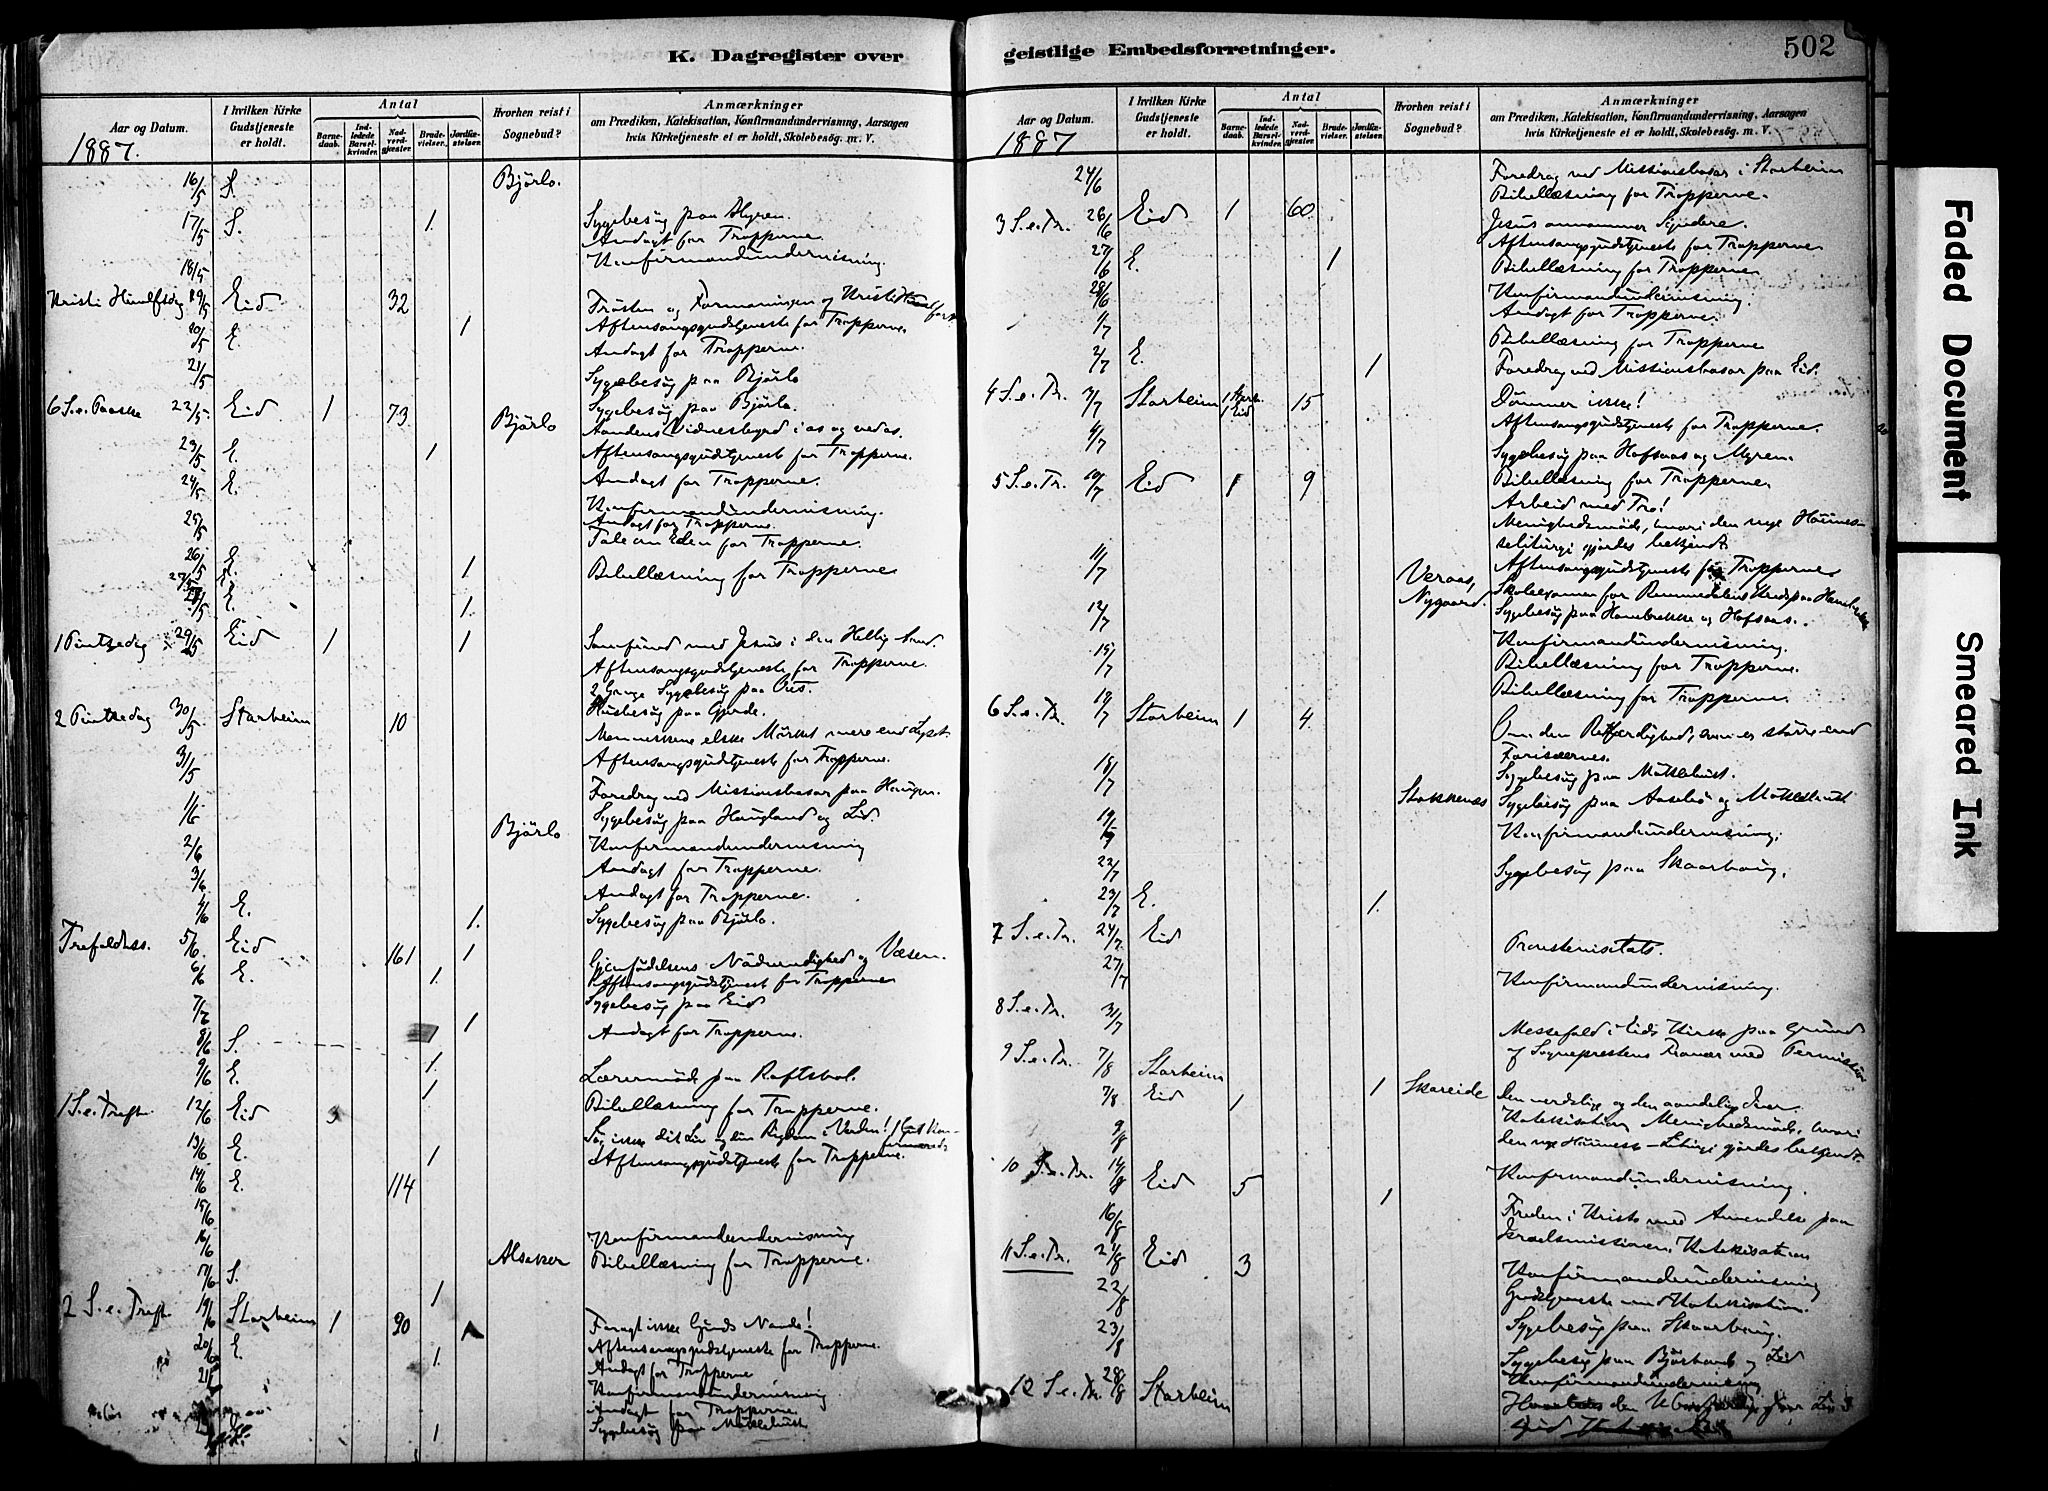 K. Dagregister over
Aar og Datum.
I hvilken Kirke Gudstjeneste er holdt.
Antal
Barnedaab.
Indledede Barselkvinder.
Nadverdgjæster.
Brudevielser.
Jordfæstelser.
Hvorhen reist i Sognebud?
Anmærkninger
om Prædiken, Katekisation, Konfirmandundervisning, Aarsagen
hvis Kirketjeneste ei er holdt, Skolebesøg. m. V.
1887.
16/5 S. Bjørlo.
17/5 S. 1. Sygebesøg paa Myren.
Andagt for Tropperne.
18/5 Konfirmandundervisning.
Kristi Himlfdag 19/5 Eid 32 Trøsten og Formaningen af Kristi
Aftensangsgudstjeneste for Tropperne.
20/5 E. 1 Andagt for Tropperne.
21/5 Sygebesøg paa Bjørlo
6 S. e. Paaske 22/5 Eid 1 73 Bjørlo Sygebesøg paa Bjørlo.
Aandens Vidnesbyrd i os og ved os.
23/5 E. 1 Aftensangsgudstjeneste for Tropperne.
24/5 E. Andagt for Tropperne.
Konfirmandundervisning.
25/5 Andagt for Tropperne.
Tale om Eden for Tropperne.
26/5 E. 1 Bibellæsning for Tropperne
27/5
28/5 E. 1.
1 Pintsedag 29/5 Eid 1 1 Samfund med Jesus i den Hellig Aand.
Aftensangsgudstjeneste for Tropperne.
2 Gange Sygebesøg paa Ores.
2 Pintsedag 30/5 Starheim 10 Husbesøg paa Gjerde.
Menneskene elske Mørket mere end Lyset.
Aftensangsgudstjeneste for Tropperne.
31/5 Foredrag ved Missionsbasar paa Haugen.
1/6 Bjørlo Sygebesøg paa Haugland og Lid.
2/6 Konfirmandundervisning
3/6 Andagt for Tropperne.
Andagt for Tropperne.
4/6 E. 1. Sygebesøg paa Bjørlo.
Trefoldhss. 5/6 Eid 161 1 Gjenfødelsens Nødvendighed og Væsen.
6/6 E. 1. Aftensangsgudstjeneste for Tropperne
Sygebesøg paa Eid
7/6 1 Andagt for Tropperne.
8/6 S. 1.
9/6 E. 1 Lærermøde paa Raftsbol.
Bibellæsning for Tropperne.
1 S. e. Trefh 12/6 Eid 3 Søg ikke dit Liv og din Rigdom i Verden!
13/6 E. 1 Aftensangsgudstjeneste for Tropperne.
14/6 E. 114
15/6
16/6 Konfirmandundervisning
Alsaker Bibellæsning for Tropperne.
17/6 S. 1
2 S. e. Trefh 19/6 Starheim 1 20 Foragt ikke Guds Naade!
20/6 E. 1. Aftensangsgudstjeneste for Tropperne.
21/6 Andagt for Tropperne
Konfirmandundervisning
Andagt for Tropperne
1. Sygebesøg paa Møklebust
geistlige Embedsforretninger.
502
Aar og Datum.
I hvilken Kirke Gudstjeneste er holdt.
Antal
Barnedaab.
Indledede Barselkvinder.
Nadverdgjæster.
Brudevielser.
Jordfæstelser.
Hvorhen reist i Sognebud?
Anmærkninger
om Prædiken, Katekisation, Konfirmandundervisning, Aarsagen
hvis Kirketjeneste et er holdt, Skolebesøg. m. V.
1887
24/6 Foredrag ved Missionsbasar i Starheim
Bibellæsning for Tropperne.
3 S. e. Tr. 26/6 Eid 1 60 Jesus annammer Syndere.
Aftensangsgudstjeneste for Tropperne
27/6 E. 1 Bibellæsning for Tropperne
28/6 Konfirmandundervisning.
1/7 Andagt for Tropperne.
Bibellæsning for Tropperne
2/7 E. 1 Foredrag ved Missionsbasar paa Eid.
4 S. e. Tr. 3/7 Starheim 1 Eid 15 Dømmer ikke!
Aftensangsgudstjeneste for Tropperne.
4/7 Sygebesøg paa Hofsaas og Myren.
5 S. e. Tr. 10/7 Eid 1 9 Bibellæsning for Tropperne.
Arbeid med Tro!
Menighedsmøde, hvori den nye Høimesse-
liturgi gjordes bekjendt.
11/7 Aftensangsgudstjeneste for Tropperne
Veraas, Nygaard. Skoleexamen for
12/7 Sygebesøg paa Hornebrekke og Hofsaas.
Konfirmandundervisning.
15/7 Bibellæsning for Tropperne.
Bibellæsning for Tropperne.
6 S. e. Tr. 17/7 Starheim 1 4 Om den Retfærdighed, som er større end
Farisæernes.
18/7 Sygebesøg paa Møklebust.
Stokkenæs Sygebesøg paa Aasebø og Møklebust
19/7 Konfirmandundervisning.
22/7 Sygebesøg paa Skaarhaug.
23/7 E. 1.
7 S. e. Tr. 24/7 Eid Provstevisitats.
27/7 Konfirmandundervisning.
8 S. e. Tr. 31/7 Messefald i Eids Kirke paa Grund
af Sogneprestens Fravær med Permission
9 S. e. Tr. 7/8 Starheim
7/8 Eid 1 1 Skareide Den verdslige og den aandelige Iver.
9/8 Katekisation. Menighedsmøde, hvori
den nye Høimesse-Liturgi gjordes bekjendt.
10 S. e. Tr. 14/8 Eid 5 1 Konfirmandundervisning.
16/8 Freden i Kristo med Anvendelse paa
Israelsmissionen. Katekisation
11 S. e. Tr. 21/8 Eid 3 Konfirmandundervisning
22/8 Gudstjeneste med Katekisation.
23/8 Sygebesøg paa Skaarhaug.
Sygebesøg paa Bjørhaug og Lid
12 S. e. Tr. 28/8 Starheim Konfirmandundervisning
Faded Document
Smeared Ink